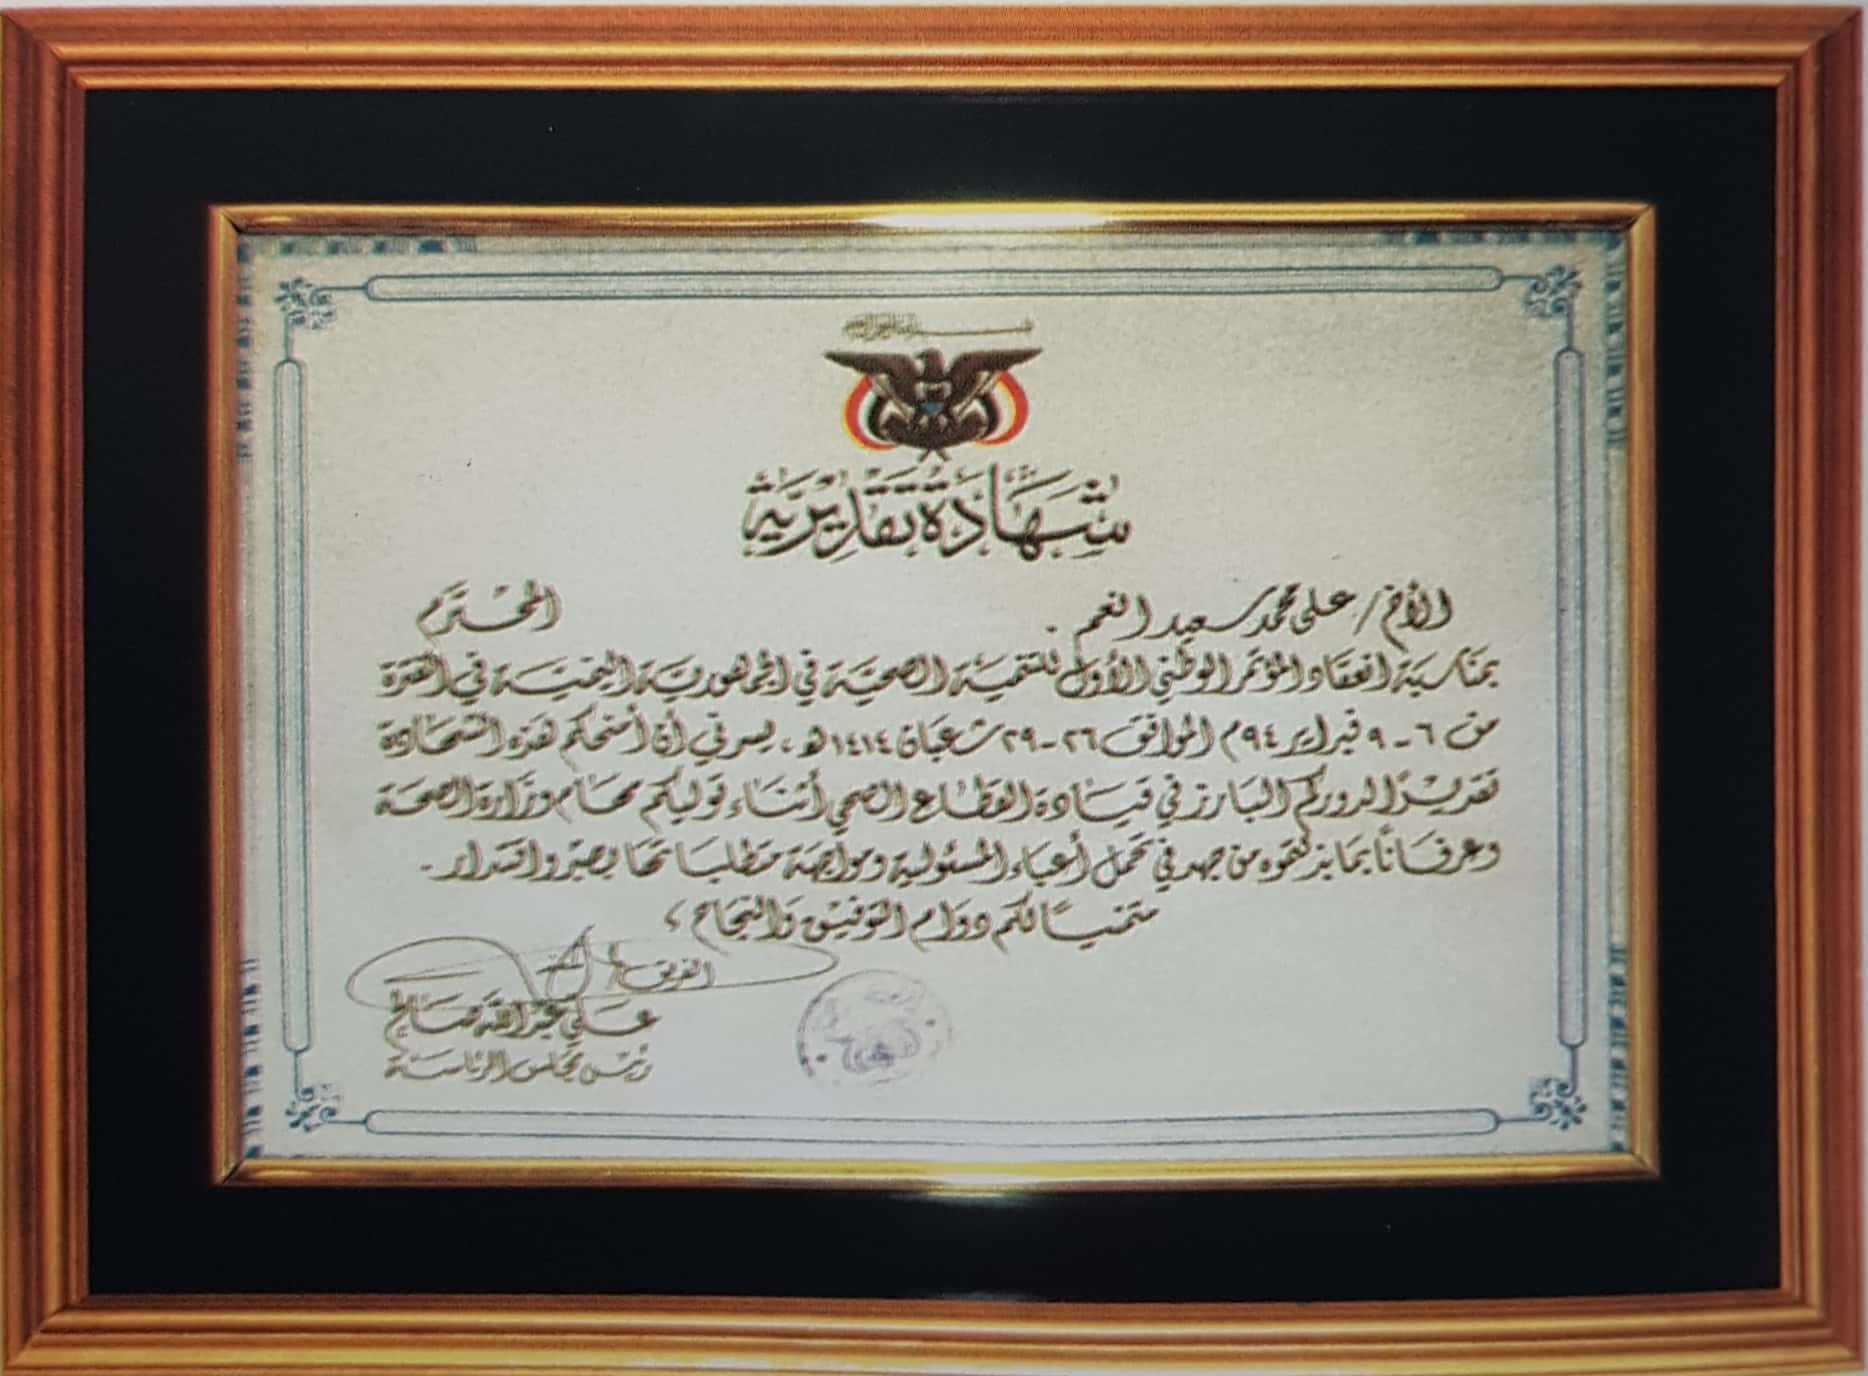 بسم الله الرحمن الرحيم
شهادة تقديرية
الأخ / علي محمد سعيد النعمي . المحترم
بمناسبة انعقاد المؤتمر الوطني الأول للتنمية الصحية في الجمهورية اليمنية في الفترة
من ٦ - ٩ فبراير ٩٤م الموافق ٢٦ - ٢٩ شعبان ١٤١٤ هـ، يسرني أن أمنحكم هذه الشهادة
تقديرًا لدوركم البارز في قيادة القطاع الصحي أثناء توليكم مهام وزارة الصحة
وعرفانًا بما بذلتموه من جهد في تحمل أعباء المسئولية ومواجهة متطلباتها بصبر واقتدار .
متمنيًا لكم دوام التوفيق والنجاح ،
الفريق /
علي عبدالله صالح
رئيس مجلس الرئاسة